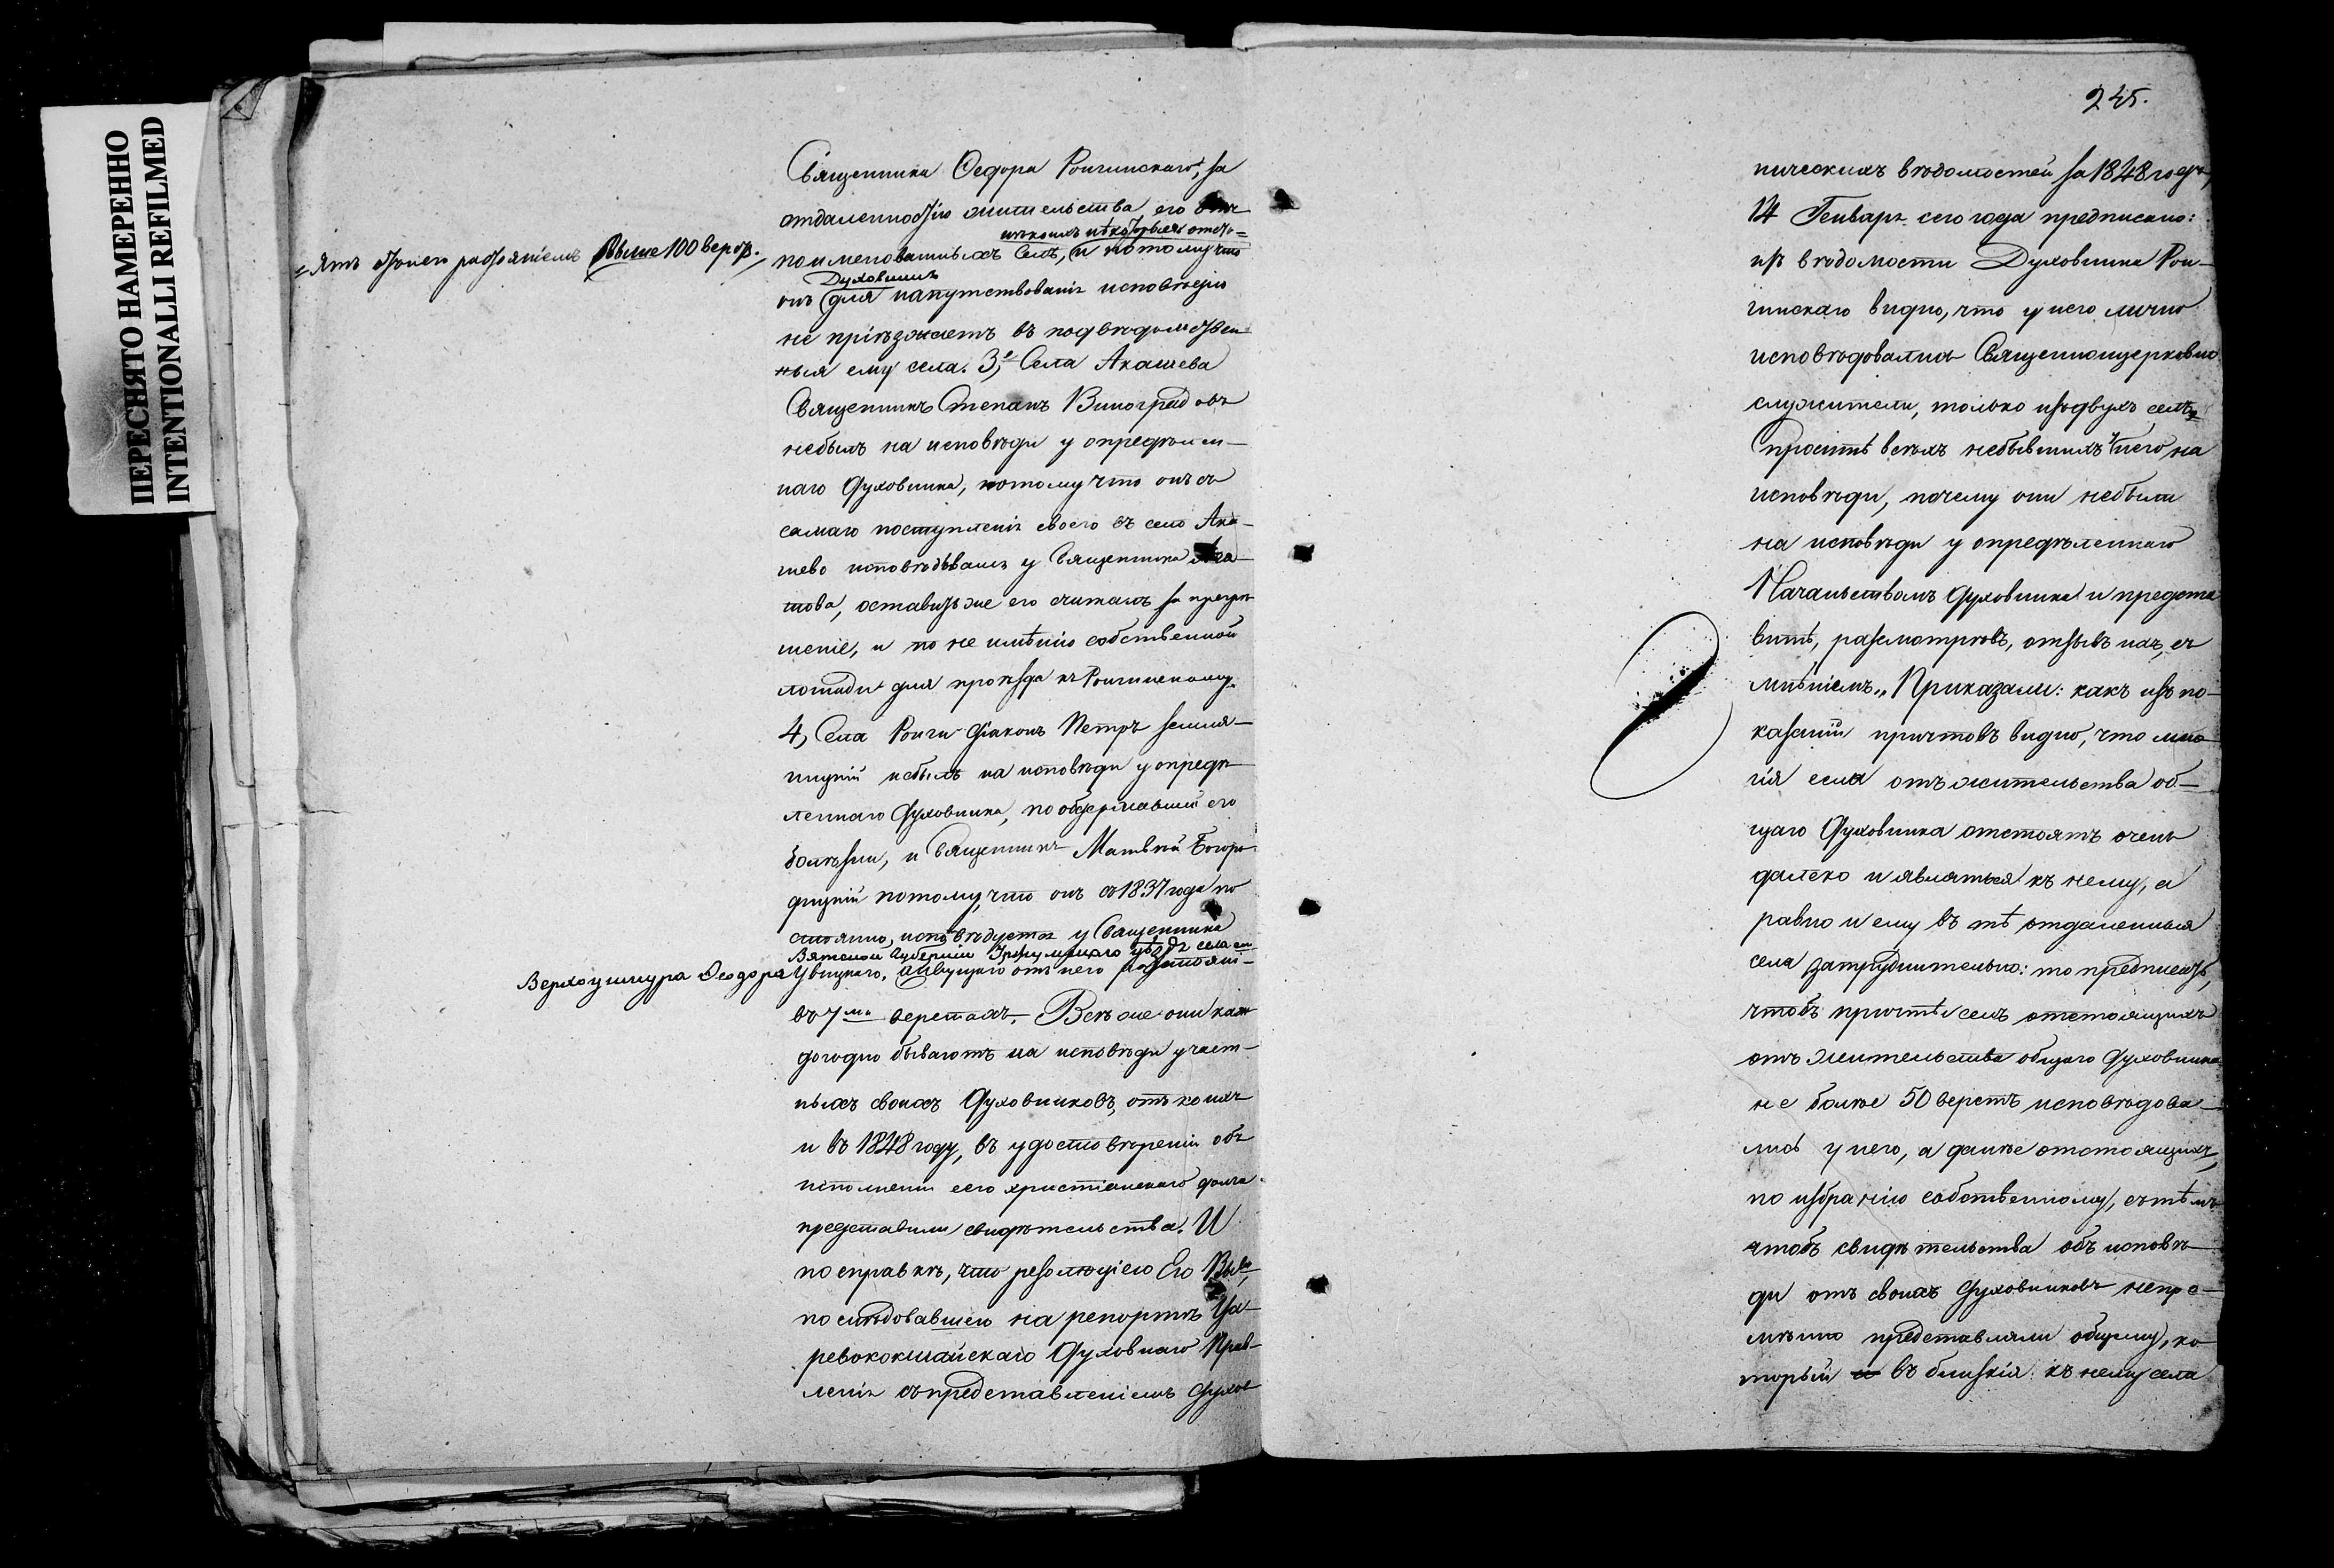 ПЕРЕСНЯТО НАМЕРЕННО
INTENTIONALLI REFILMED
Священника Ѳедора Ронгинскаго, за
отдаленностію жительства его отъ
нихъ некоторыя отсто=
=ятъ отъ него разстояніемъ свыше 100 верст.
поименованныхъ селъ, и потому что
Духовникъ
онъ для напутствованія исповедію
не пріѣзжаетъ въ подведомствен
ныя ему села. 3, Села Акашева
Священникъ Степанъ Виноградовъ
небылъ на исповѣди у опредѣлен-
наго Духовника, потому что онъ съ
самаго поступленія своего въ село Ака-
шево исповѣдывался у Священника
оставить же его считалъ за прегрѣ
шеніе, и по не имѣнію собственной
лошади для проѣзда къ Ронгинскому.
4, Села Ронги Діаконъ Петръ Земля-
ницкій небылъ на исповѣди у опредѣ
леннаго Духовника, по обдержавшей его
болѣзни, и Священникъ Матвей Богоро
дицкій потому, что онъ съ 1837 года по
стоянно исповѣдуется у Священника
Вятской Губерніи Уржумскаго уѣзда села
Верхоушнура Ѳеодора
отъ него разстояні-
въ 7ми верстахъ. Всѣ же они каж
догодно бываютъ на исповѣди у част-
ныхъ своихъ Духовниковъ, отъ коихъ
и въ 1848 году, въ удостовѣреніи объ
исполненіи сего христіанскаго долга
представили свидѣтельства. И
по справкѣ, что резолюціею Его Выс
последовавшею на репортѣ Ца-
ревококшайскаго Духовнаго Прав-
ленія съ представленіемъ Духов
245.
ническихъ вѣдомостей за 1848 годъ,
14 Генваря сего года предписано:
изъ вѣдомости Духовника Рон-
гинскаго видно, что у него лично
исповѣдовались Священноцерковно
служители, только изъ двухъ селъ
Спросить всѣхъ небывшихъ у него на
исповѣди, почему они небыли
на исповѣди у опредѣленнаго
Начальствомъ Духовника и предста
вить, разсмотрѣвъ, отзывъ ихъ, съ
мнѣніемъ„ Приказали: какъ изъ по-
казаній причтовъ видно, что мно
гія села отъ жительства об-
щаго Духовника отстоятъ очень
далеко и являться къ нему, а
равно и ему въ тѣ отдаленныя
села затруднительно: то предписать,
чтобъ причты селъ отстоящихъ
отъ жительства общаго Духовника
не болѣе 50 верстъ исповѣдова-
лись у него, а далѣе отстоящихъ,
по избранію собственному, съ тѣмъ
чтобъ свидѣтельства объ исповѣ-
ди отъ своихъ Духовниковъ непре-
мѣнно представляли общему, ко
торый въ близкія къ нему села